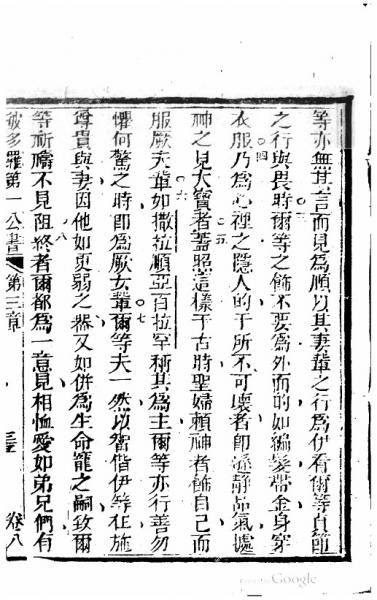 等亦無其言而見為順以其妻輩之行為伊看爾等貞節
之行與畏時爾等之飾不要為外面的如編髮帶金身穿
衣服乃為心裡之隱人的于所不可壞者即遜靜品氣處
神之見大寶者蓋照這樣于古時聖婦賴神者飾自己而
服厥夫輩如撒拉順亞百拉罕稱其為主爾等亦行善勿
懼何驚之時即為厥女輩爾等夫一然以智偕伊等住施
尊貴與妻因他如更弱之器又如併為生命寵之嗣致爾
等祈禱不見阻終者爾都為一意見相恤愛如弟兄們有
彼多羅第一公書 第三章 卷八
Google